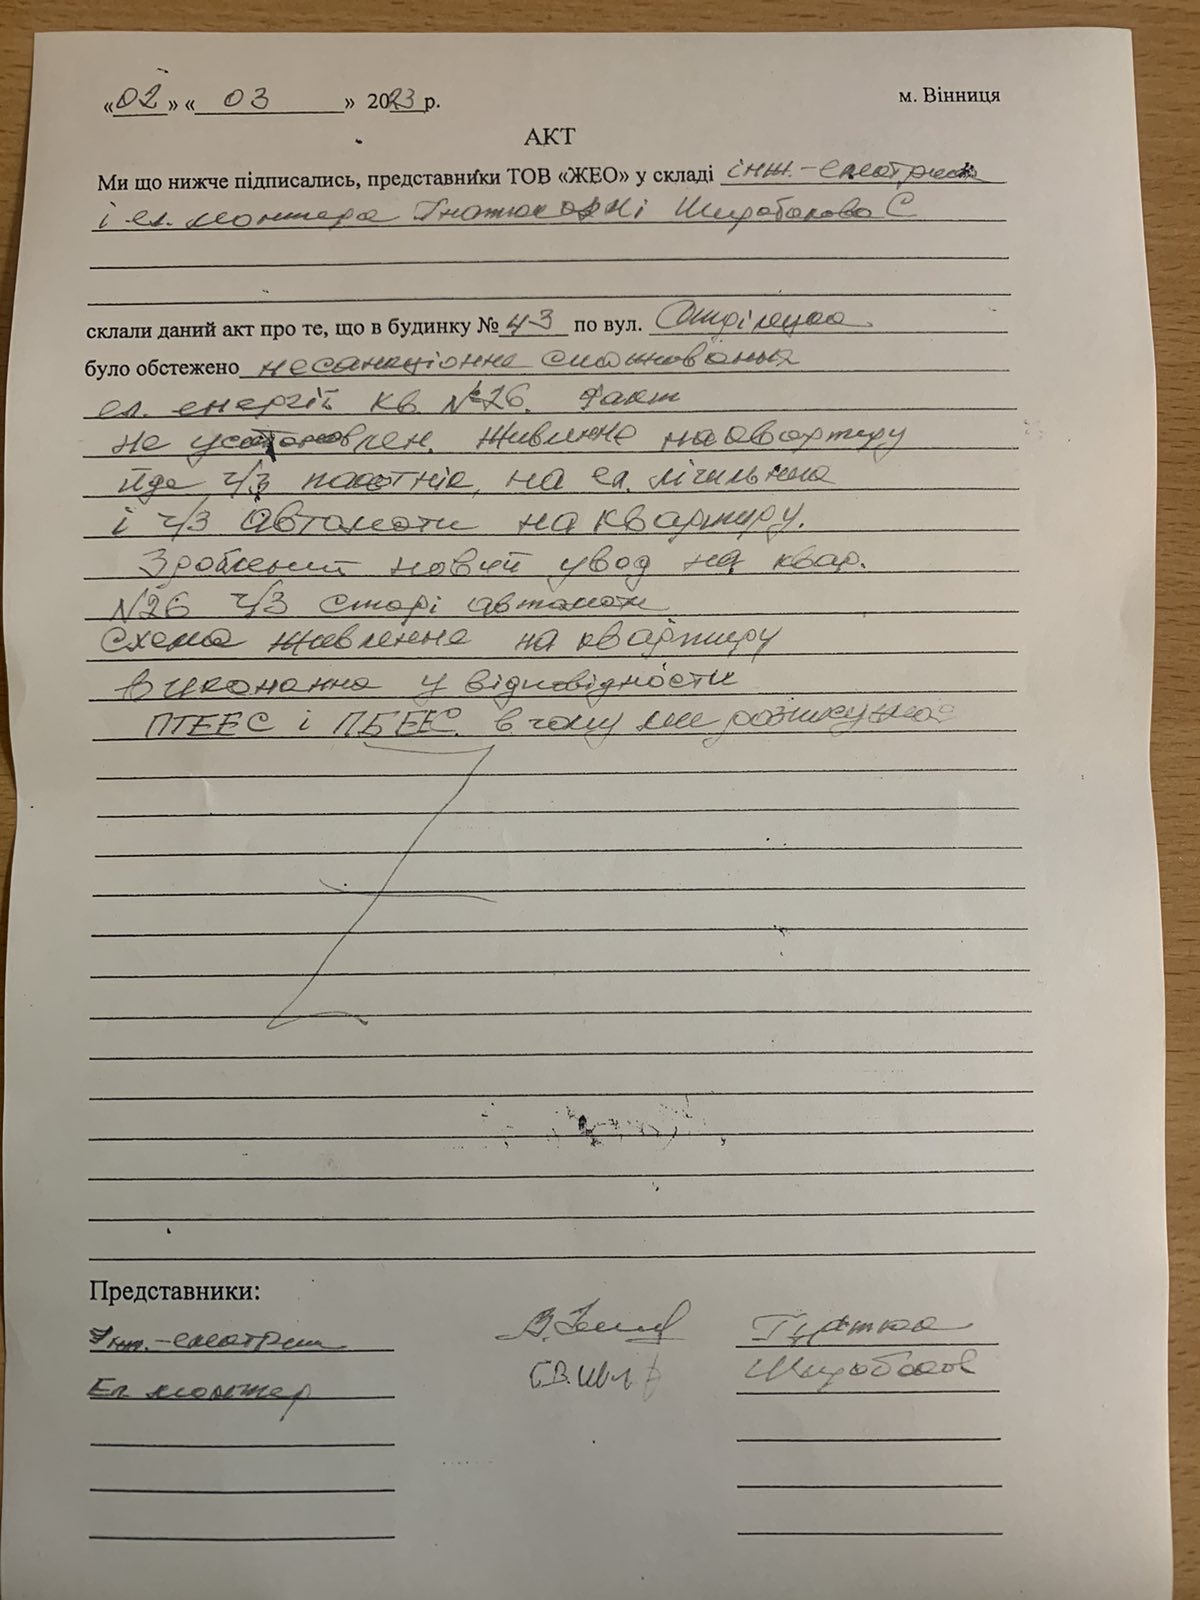 «02» « 03 » 2023 р. м. Вінниця
АКТ
Ми що нижче підписались, представники ТОВ «ЖЕО» у складі інж.-електрика
і ел. монтера Гнатюк і Широбокова С
склали даний акт про те, що в будинку № 43 по вул.
було обстежено несанкціонне споживання
ел. енергії кв. №26. Факт
не установлен. Живлення на квартиру
йде ч/з пакетнік, на ел. лічильник
і ч/з автомати на квартиру.
Зроблений новий увод на квар.
N26 ч/з старі автомати
Схема живлення на квартиру
виконанна у відповідности
ПТЕЕС і ПБЕЕС. в чому ми розписуємось
Представники:
Інж.-електрик
Ел. монтер Широбоков